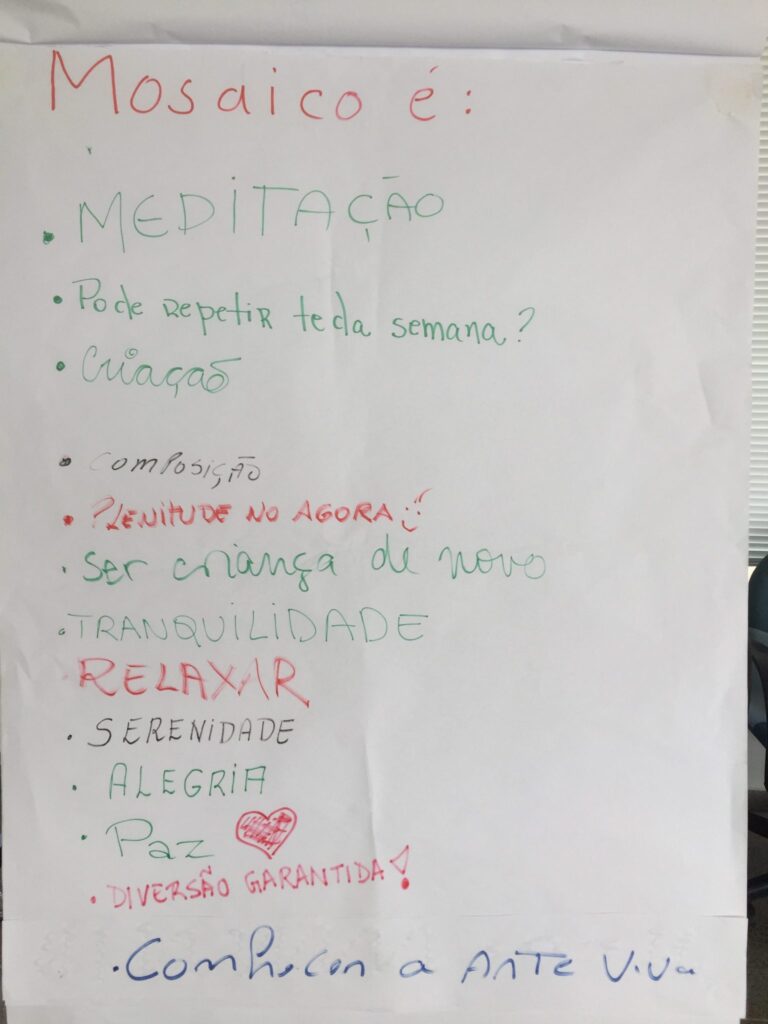 Mosaico é:
• MEDITAÇÃO
• Pode repetir toda semana?
• Criação
• COMPOSIÇÃO
• PLENITUDE NO AGORA
• Ser criança de novo
• TRANQUILIDADE
RELAXAR
• SERENIDADE
• ALEGRIA
• Paz
• DIVERSÃO GARANTIDA!
• Conhecer a ARTE Viva